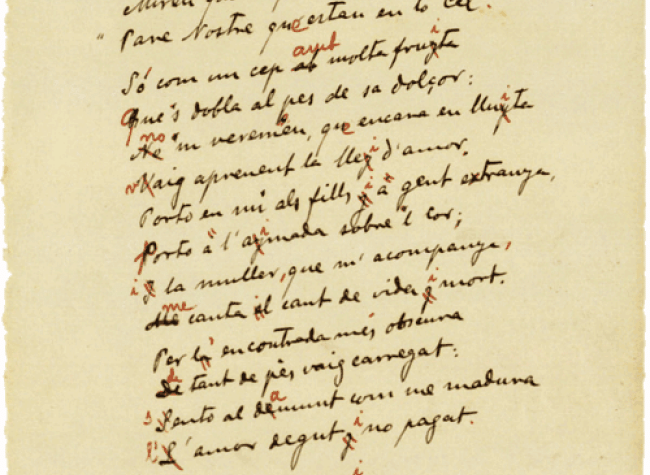 Mireu
"Pare Nostre que estau en lo cel."
Só com un cep amb molta fruita
Que's dobla al pes de sa dolçor:
no 'm veremeu, que encara en lluita
vaig aprenent la llei d'amor.
Porto en mi als fills i a gent extranya,
Porto a l'aimada sobre 'l cor;
i la muller, que m'acompanya,
me canta el cant de vida i mort.
Per la encontrada més obscura
de tant de pès vaig carregat:
sento al damunt com me madura
l'amor degut i no pagat.